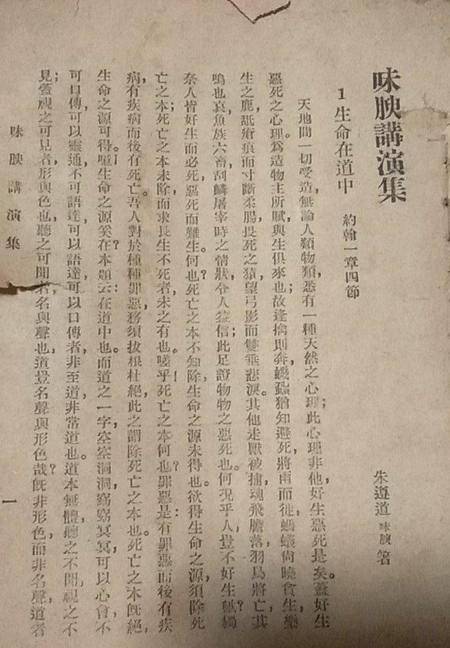 味腴講演集
1 生命在道中 約翰一章四節
朱遵道 味腴 箸
天地間一切受造，無論人類物類，悉有一種天然之心理；此心理非他，好生惡死是矣。蓋好生
惡死之心理，爲造物主所賦，與生俱來也；故逢擒則奔，蟣蝨猶知避死，將雨而徙，螞蟻尙曉貪生；樂
生之鹿，舐瘡痕而寸斷柔腸，畏死之猿，望弓影而雙垂悲淚。其他走獸被捕，魂飛膽落，羽鳥將亡，其
鳴也哀，魚族六畜，刮鱗屠宰時之情狀，令人益信；此足證物物之惡死也。何况乎人，豈不好生？無
奈人皆好生而必死，惡死而難生。何也？死亡之本不知除，生命之源未得也。欲得生命之源，須除死
亡之本；死亡之本未除，而求長生不死者，未之有也。嗟乎！死亡之本何也？罪惡是；有罪惡而後有疾
病，有疾病而後有死亡。吾人對於種種罪惡，務須拔根杜絕，此之謂除死亡之本也。死亡之本旣絕，
生命之源可得。噫！生命之源奚在？本題云：在道中也。而道之一字，空空洞洞，窈窈冥冥，可以心會，不
可口傳，可以靈通，不可語達，可以語達，可以口傳者，非至道，非常道也。道本無體，聽之不聞，視之不
見；蓋視之可見者，形與色也，聽之可聞者，名與聲也，道豈名聲與形色哉？旣非形色，而非名聲，道者
味腴講演集
一